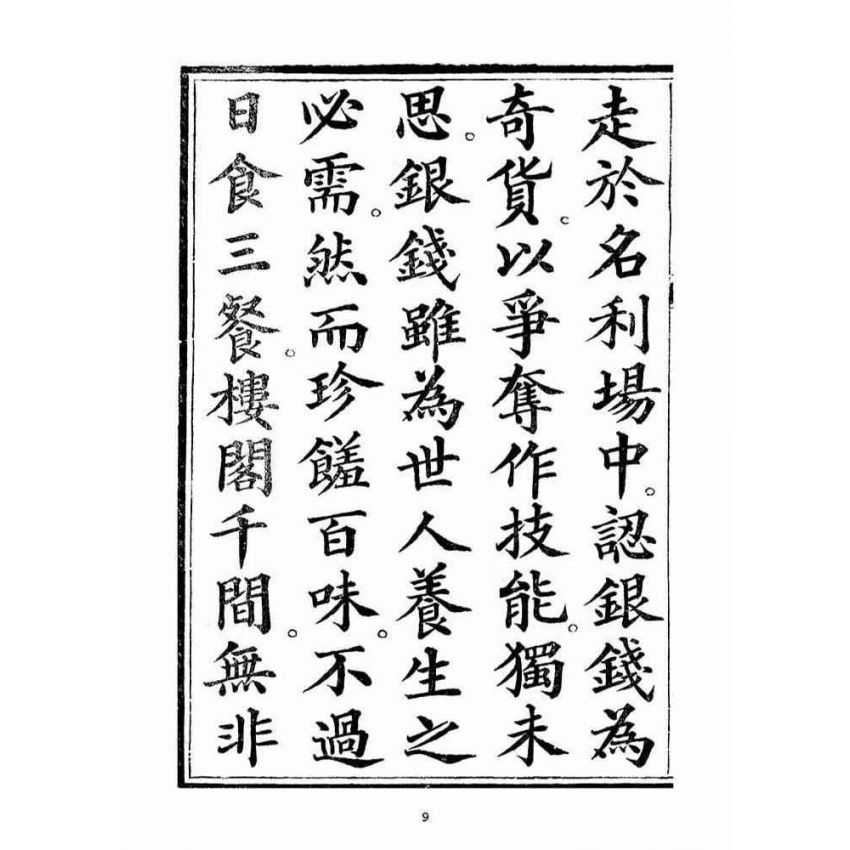 走於名利場中。認銀錢為
奇貨。以爭奪作技能。獨未
思。銀錢雖為世人養生之
必需。然而珍饈百味。不過
日食三餐。樓閣千間。無非
9